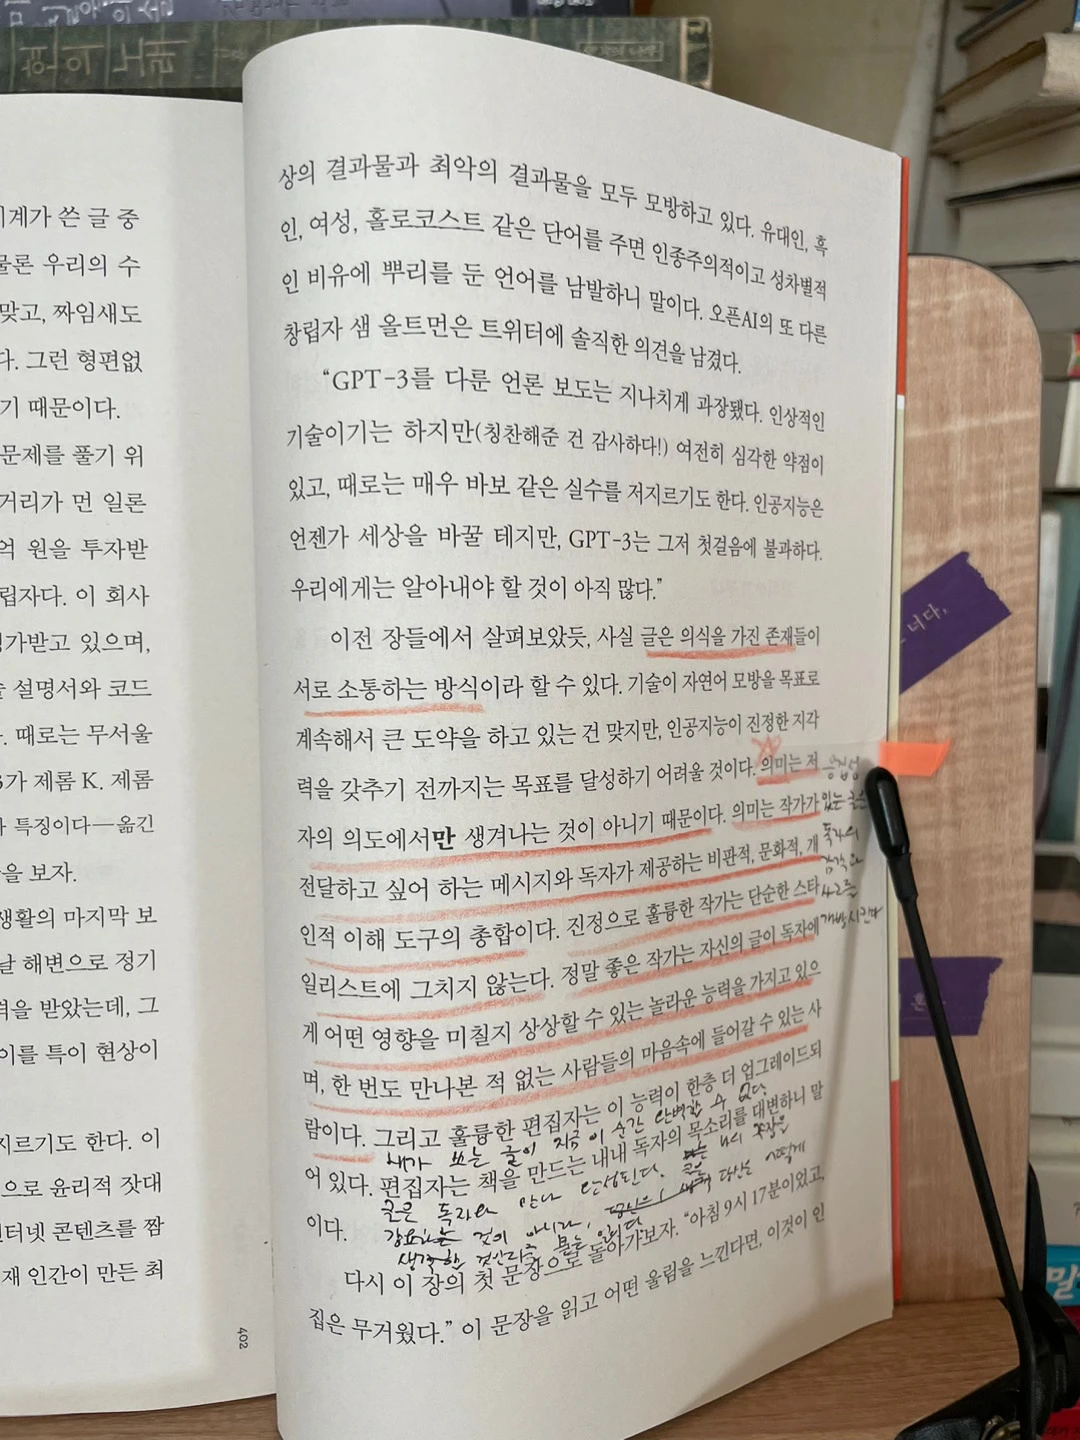 세계가 쓴 글 중
물론 우리의 수
맞고, 짜임새도
다. 그런 형편없
기 때문이다.
문제를 풀기 위
거리가 먼 일론
억 원을 투자받
립자다. 이 회사
가받고 있으며,
설명서와 코드
때로는 무서울
가 제롬 K. 제롬
특징이다—옮긴
을 보자.
생활의 마지막 보
날 해변으로 정기
격을 받았는데, 그
이를 특이 현상이
지르기도 한다. 이
으로 윤리적 잣대
인터넷 콘텐츠를 짬
재 인간이 만든 최
402
상의 결과물과 최악의 결과물을 모두 모방하고 있다. 유대인, 흑
인, 여성, 홀로코스트 같은 단어를 주면 인종주의적이고 성차별적
인 비유에 뿌리를 둔 언어를 남발하니 말이다. 오픈AI의 또 다른
창립자 샘 올트먼은 트위터에 솔직한 의견을 남겼다.
“GPT-3를 다룬 언론 보도는 지나치게 과장됐다. 인상적인
기술이기는 하지만(칭찬해준 건 감사하다!) 여전히 심각한 약점이
있고, 때로는 매우 바보 같은 실수를 저지르기도 한다. 인공지능은
언젠가 세상을 바꿀 테지만, GPT-3는 그저 첫걸음에 불과하다.
우리에게는 알아내야 할 것이 아직 많다.”
이전 장들에서 살펴보았듯, 사실 글은 의식을 가진 존재들이
서로 소통하는 방식이라 할 수 있다. 기술이 자연어 모방을 목표로
계속해서 큰 도약을 하고 있는 건 맞지만, 인공지능이 진정한 지각
력을 갖추기 전까지는 목표를 달성하기 어려울 것이다. 의미는 저
자의 의도에서만 생겨나는 것이 아니기 때문이다. 의미는 작가가
전달하고 싶어 하는 메시지와 독자가 제공하는 비판적, 문화적, 개
인적 이해 도구의 총합이다. 진정으로 훌륭한 작가는 단순한 스타
일리스트에 그치지 않는다. 정말 좋은 작가는 자신의 글이 독자에
게 어떤 영향을 미칠지 상상할 수 있는 놀라운 능력을 가지고 있으
며, 한 번도 만나본 적 없는 사람들의 마음속에 들어갈 수 있는 사
람이다. 그리고 훌륭한 편집자는 이 능력이 한층 더 업그레이드되
내가 쓰는 글이 지금 이 순간 완벽할 수 없다.
어 있다. 편집자는 책을 만드는 내내 독자의 목소리를 대변하니 말
글은 독자와 만나 완성된다. 내 문장을
이다.
강요하는 것이 아니라, 당신은 어떻게
생각한 것인지를 묻는 일이다.
다시 이 장의 첫 문장으로 돌아가보자. “아침 9시 17분이었고,
집은 무거웠다.” 이 문장을 읽고 어떤 울림을 느낀다면, 이것이 인
있는 글은
독자의
감각과
사고를
개발시킨다
너다,